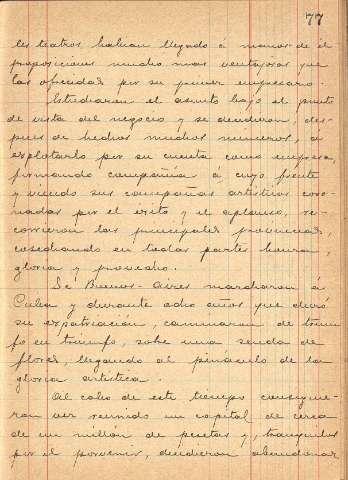 77
les teatros habian llegado á manos de él
proposiciones mucho mas ventajosas que
las ofrecidas por su primer empresario.
Estudiaron el asunto bajo el punto
de vista del negocio y se decidieron, des-
pues de hechos muchos números, á
explotarlo por su cuenta como empresa,
formando compañia á cuyo frente
y viendo sus campañas artisticas coro-
nadas por el exito y el aplauso, re-
corrieron las principales provincias,
cosechando en todas partes honra,
gloria y provecho.
De Buenos-Aires marcharon á
Cuba y durante ocho años que duró
su expatriación, caminaron de triun-
fo en triunfo, sobre una senda de
flores, llegando al pináculo de la
gloria artistica.
Al cabo de este tiempo consiguie-
ron ver reunido un capital de cerca
de un millón de pesetas y, tranquilos
por el porvenir, decidieron abandonar